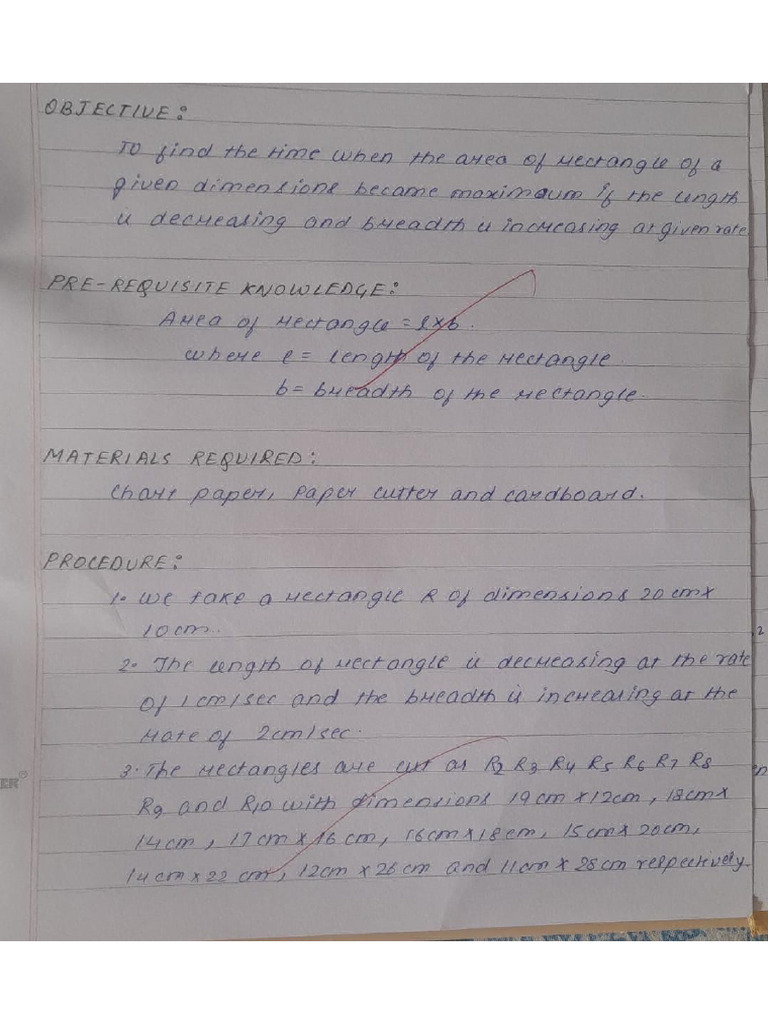 OBJECTIVE:
To find the time when the area of rectangle of a
given dimensions became maximum if the length
is decreasing and breadth is increasing at given rate
PRE-REQUISITE KNOWLEDGE:
Area of rectangle = l×b.
where l = length of the rectangle.
b = breadth of the rectangle.
MATERIALS REQUIRED:
Chart paper, Paper cutter and cardboard.
PROCEDURE:
1. We take a rectangle R of dimensions 20 cm x
10cm.
2. The length of rectangle is decreasing at the rate
of 1 cm/sec and the breadth is increasing at the
rate of 2cm/sec.
3. The rectangles are cut as R2 R3 R4 R5 R6 R7 R8
R9 and R10 with dimensions 19 cm x 12cm, 18cm x
14cm, 17cm x 16 cm, 16cm x 18cm, 15cm x 20cm,
14cm x 22 cm, 12cm x 26 cm and 11cm x 28cm respectively.
ER®
2